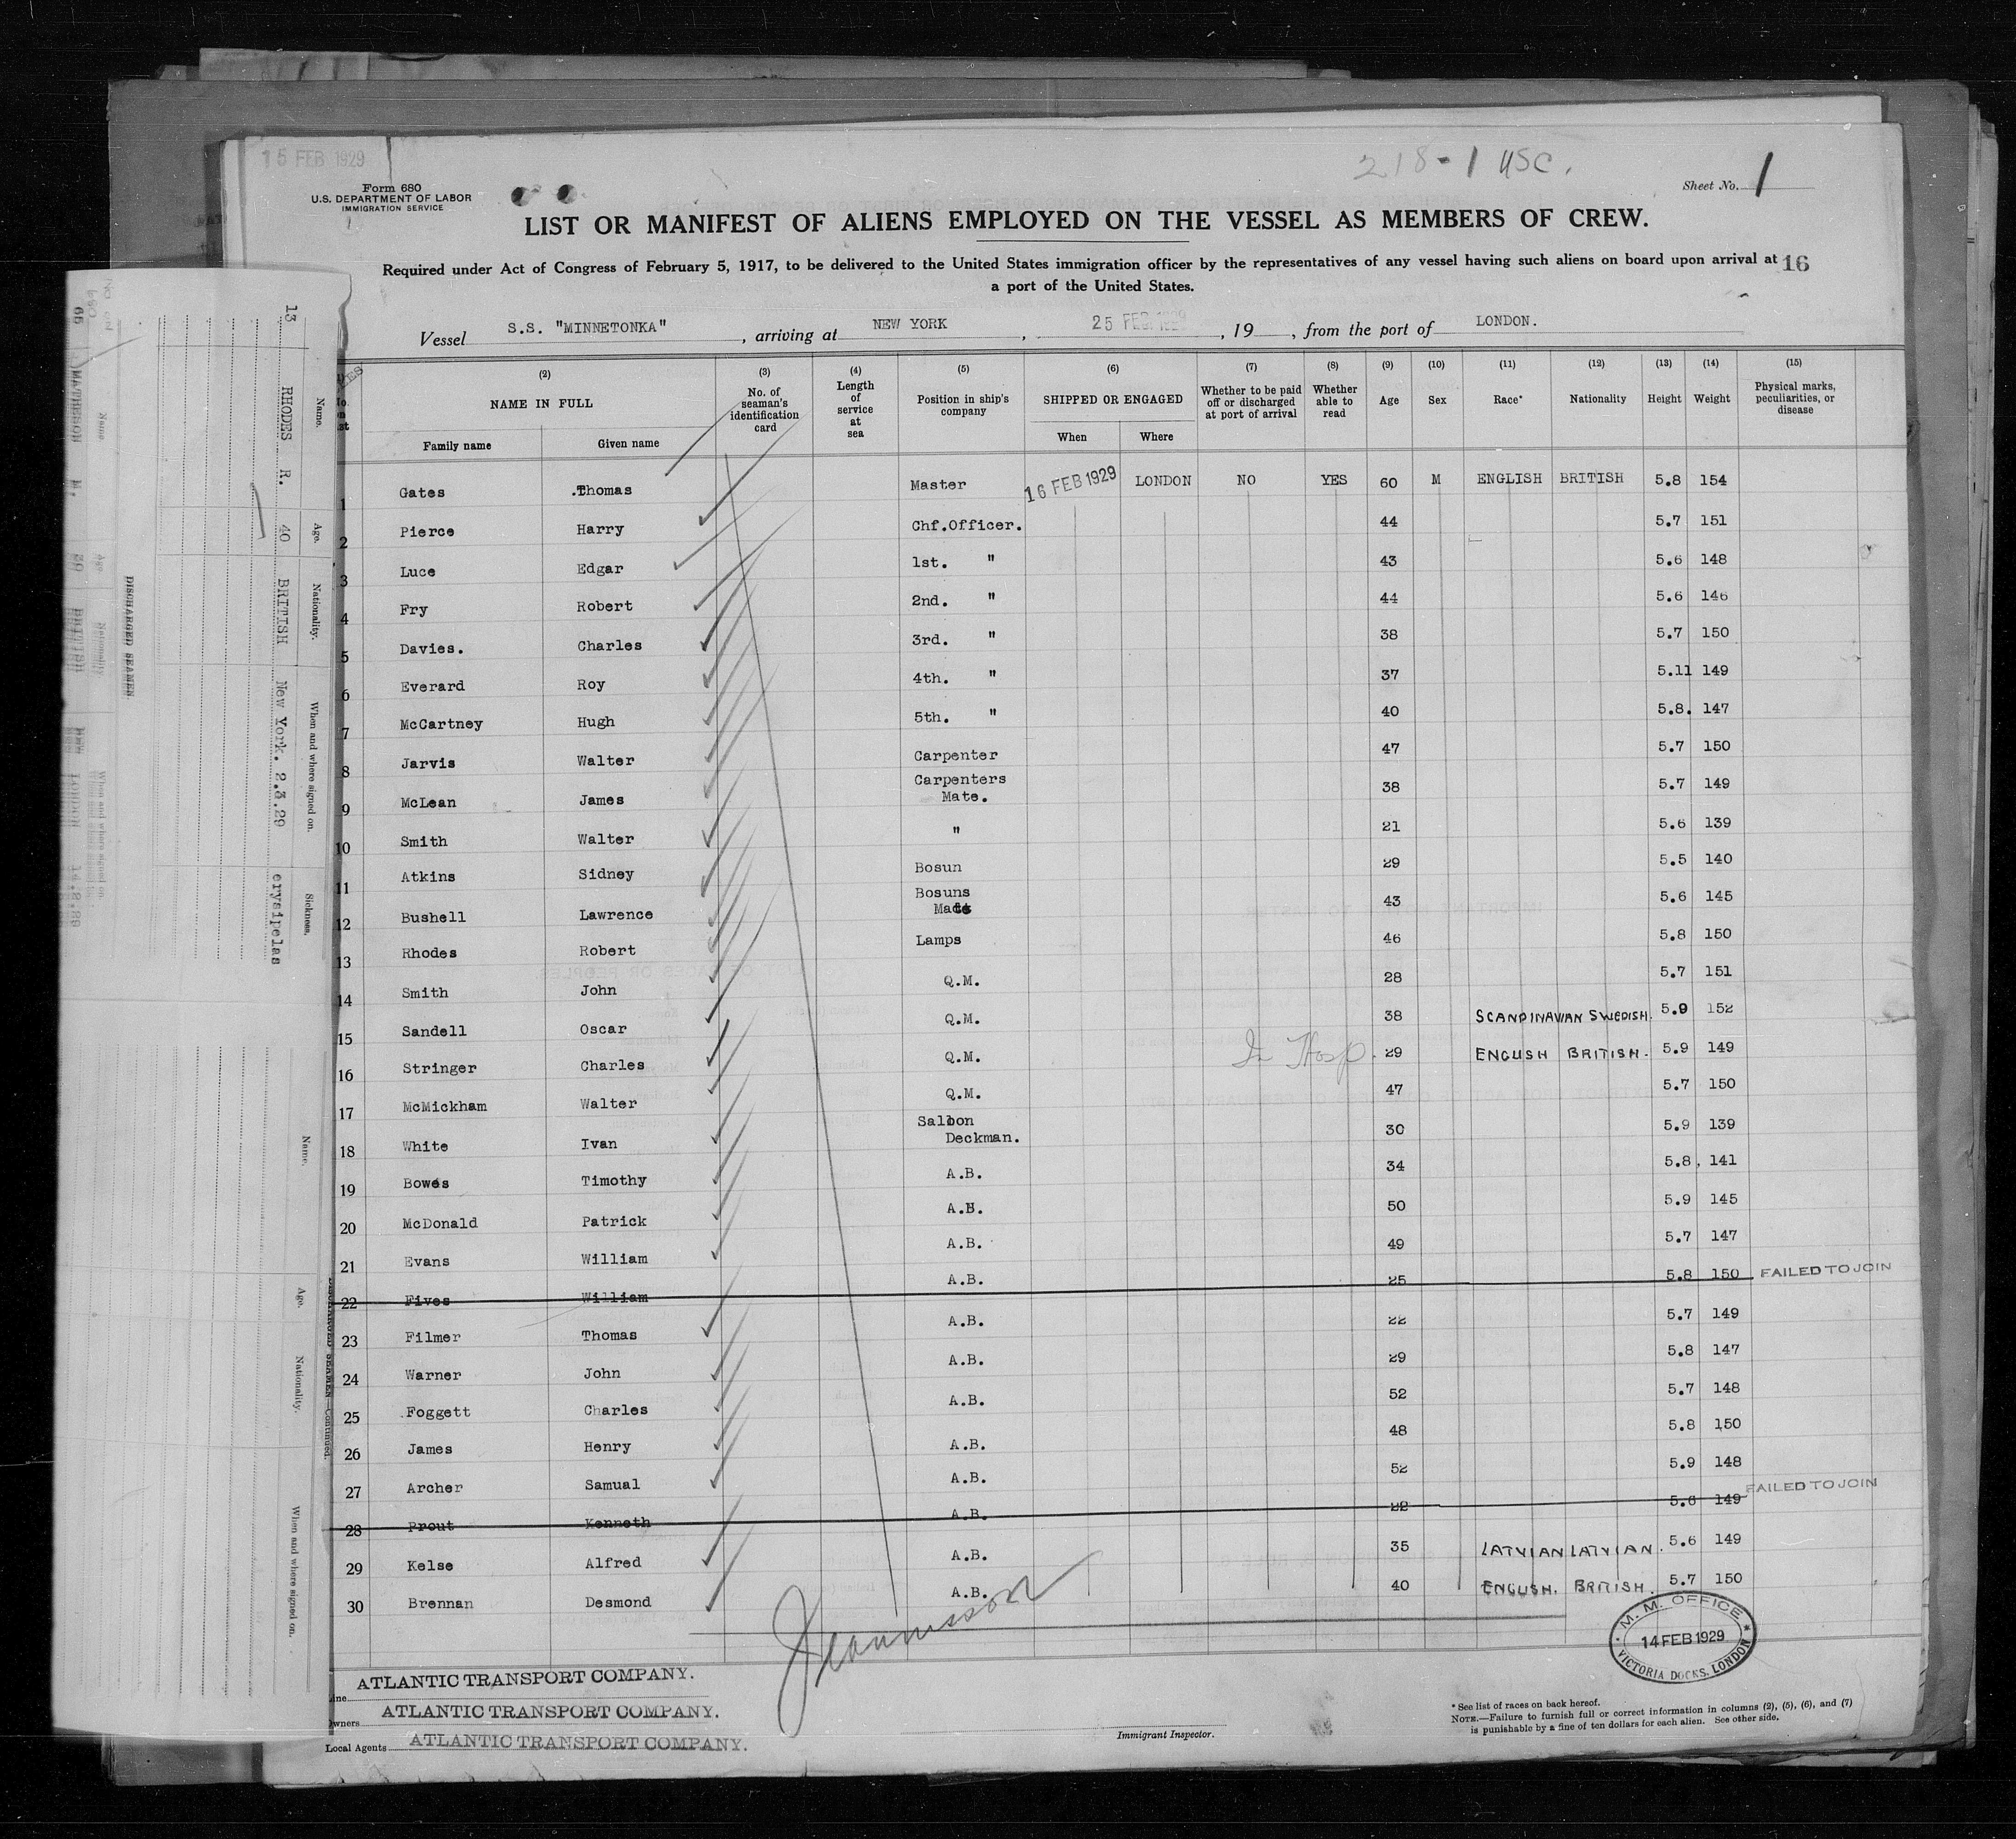 15 FEB 1929
218-1 USC.
Form 680
U.S. DEPARTMENT OF LABOR
IMMIGRATION SERVICE
Sheet No. 1
LIST OR MANIFEST OF ALIENS EMPLOYED ON THE VESSEL AS MEMBERS OF CREW.
Required under Act of Congress of February 5, 1917, to be delivered to the United States immigration officer by the representatives of any vessel having such aliens on board upon arrival at
a port of the United States.
16
Vessel S.S. "MINNETONKA" , arriving at NEW YORK , 25 FEB 1929 , 19 , from the port of LONDON.
(2) (3) (4) (5) (6) (7) (8) (9) (10) (11) (12) (13) (14) (15)
NAME IN FULL Family name Given name No. of seaman's identification card Length of service at sea Position in ship's company SHIPPED OR ENGAGED When Where Whether to be paid off or discharged at port of arrival Whether able to read Age Sex Race* Nationality Height Weight Physical marks, peculiarities, or disease
1 Gates .Thomas Master 16 FEB 1929 LONDON NO YES 60 M ENGLISH BRITISH 5.8 154
2 Pierce Harry Chf.Officer. 44 5.7 151
3 Luce Edgar 1st. " 43 5.6 148
4 Fry Robert 2nd. " 44 5.6 146
5 Davies. Charles 3rd. " 38 5.7 150
6 Everard Roy 4th. " 37 5.11 149
7 McCartney Hugh 5th. " 40 5.8. 147
8 Jarvis Walter Carpenter 47 5.7 150
9 McLean James Carpenters Mate. 38 5.7 149
10 Smith Walter " 21 5.6 139
11 Atkins Sidney Bosun 29 5.5 140
12 Bushell Lawrence Bosuns 43 5.6 145
13 Rhodes Robert Lamps 46 5.8 150
14 Smith John Q.M. 28 5.7 151
15 Sandell Oscar Q.M. 38 SCANDINAVIAN SWEDISH. 5.9 152
16 Stringer Charles Q.M. In Hosp. 29 ENGLISH BRITISH. 5.9 149
17 McMickham Walter Q.M. 47 5.7 150
18 White Ivan Saloon Deckman. 30 5.9 139
19 Bowes Timothy A.B. 34 5.8, 141
20 McDonald Patrick A.B. 50 5.9 145
21 Evans William A.B. 49 5.7 147
22 Fives William A.B. 25 5.8 150 FAILED TO JOIN
23 Filmer Thomas A.B. 22 5.7 149
24 Warner John A.B. 29 5.8 147
25 .Foggett Charles A.B. 52 5.7 148
26 James Henry A.B. 48 5.8 150
27 Archer Samual A.B. 52 5.9 148
28 Prout Kenneth A.B. 22 5.6 149 FAILED TO JOIN
29 Kelse Alfred A.B. 35 LATVIAN LATVIAN. 5.6 149
30 Brennan Desmond A.B. 40 ENGLISH. BRITISH. 5.7 150
M. M. OFFICE
14 FEB 1929
VICTORIA DOCKS. LONDON
Line ATLANTIC TRANSPORT COMPANY.
Owners ATLANTIC TRANSPORT COMPANY.
Local Agents ATLANTIC TRANSPORT COMPANY.
Immigrant Inspector.
* See list of races on back hereof.
NOTE.—Failure to furnish full or correct information in columns (2), (5), (6), and (7)
is punishable by a fine of ten dollars for each alien. See other side.
Name. Age. Nationality. When and where signed on. Sickness.
13 RHODES R. 40 BRITISH New York. 2.3.29 erysipelas
DISCHARGED SEAMEN.
Name. Age. Nationality. When and where signed on.
DISCHARGED SEAMEN—Continued.